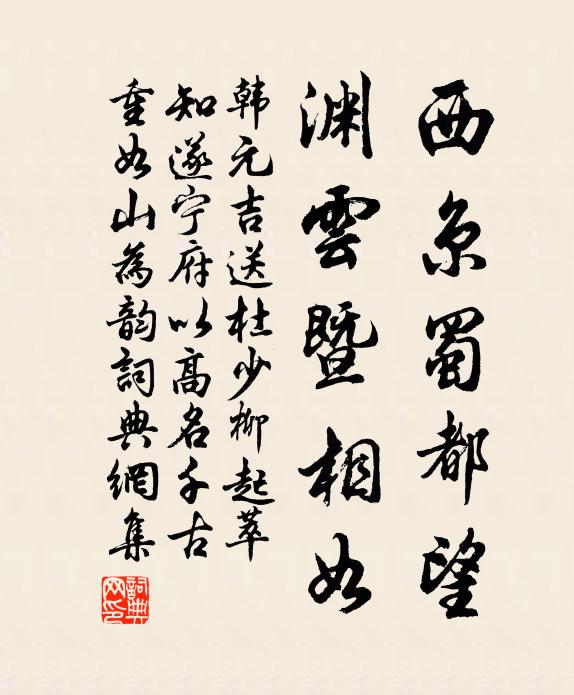 西京蜀都望
渊雲暨相如
韩元吉送杜少柳起萃
知遂宁府以高名千古
重如山為韵詞典網集
詞典
网印